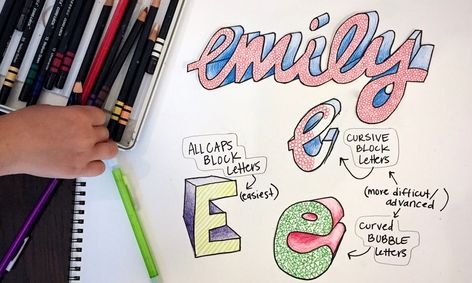 emily
e
ALL CAPS
BLOCK
Letters
(easiest)
E
CURSIVE
BLOCK
Letters
(more difficult/
advanced)
e
curved
BUBBLE
Letters